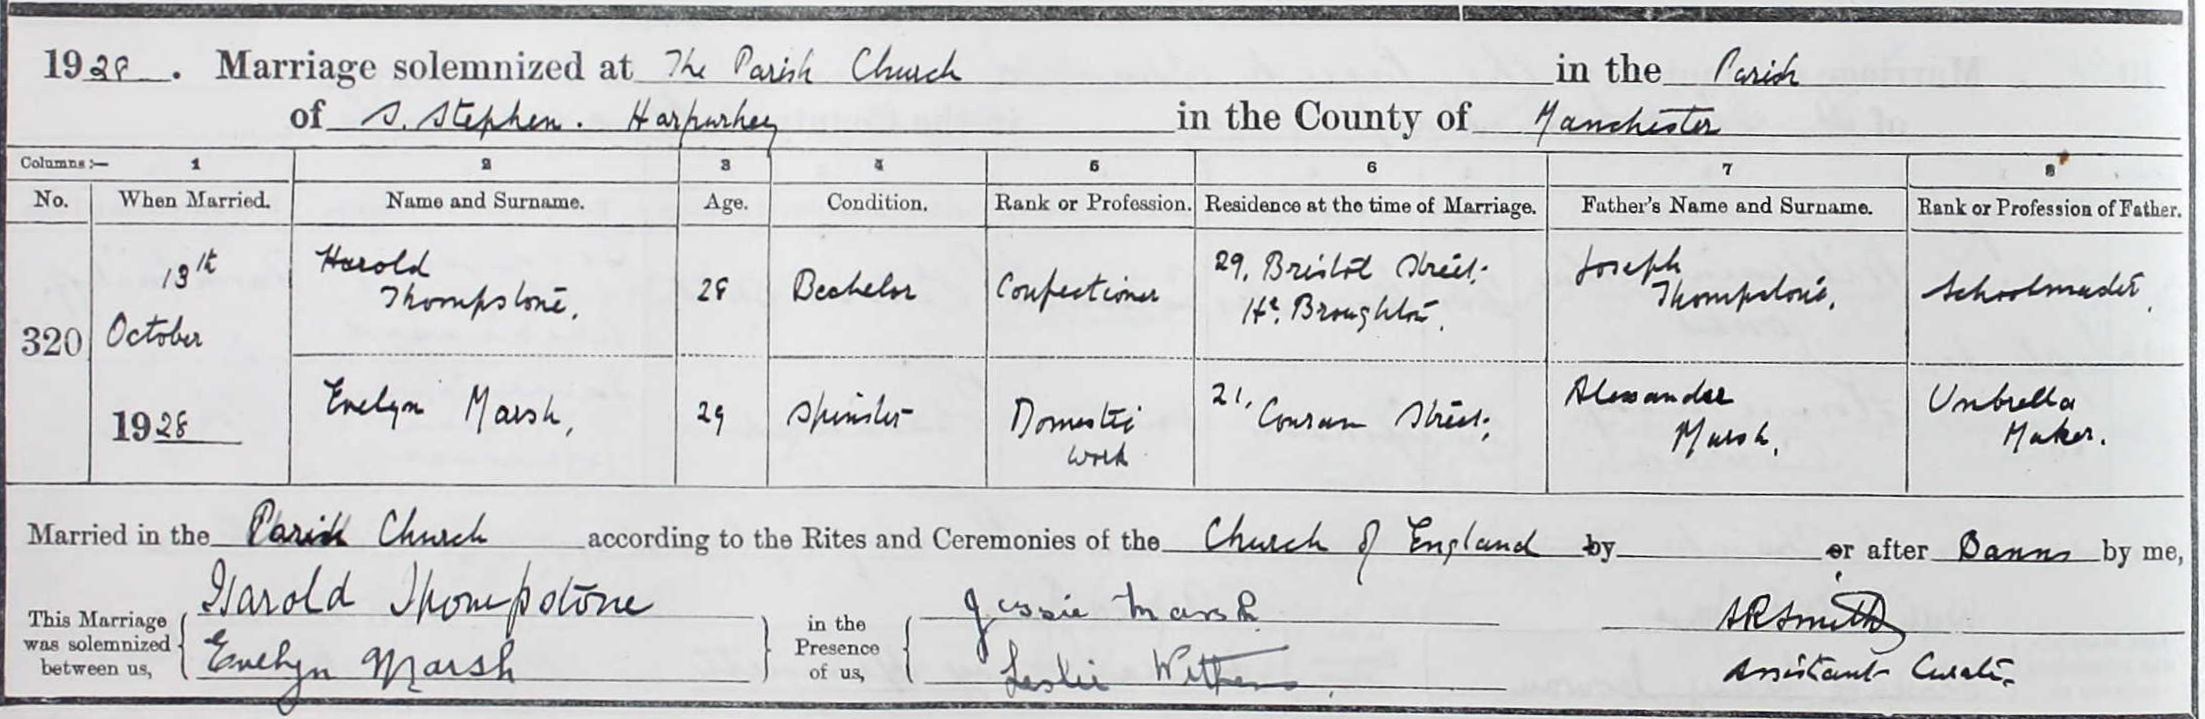 1928. Marriage solemnized at The Parish Church in the Parish
of S. Stephen. Harpurhey in the County of Manchester
Columns:— 1 2 3 4 5 6 7 8
No. When Married. Name and Surname. Age. Condition. Rank or Profession. Residence at the time of Marriage. Father's Name and Surname. Rank or Profession of Father.
320
13th
October
1928
Harold
Thompstone,
28
Bachelor
Confectioner
29, Bristol Street.
Hr. Broughton.
Joseph
Thompstone,
Schoolmaster.
Evelyn Marsh,
29
Spinster
Domestic
work
21, Conran Street,
Alexander
Marsh,
Umbrella
Maker.
Married in the Parish Church according to the Rites and Ceremonies of the Church of England by or after Banns by me,
This Marriage
was solemnized
between us,
Harold Thompstone
Evelyn Marsh
in the
Presence
of us,
Jessie Marsh
Leslie
A R Smith
Assistant Curate.